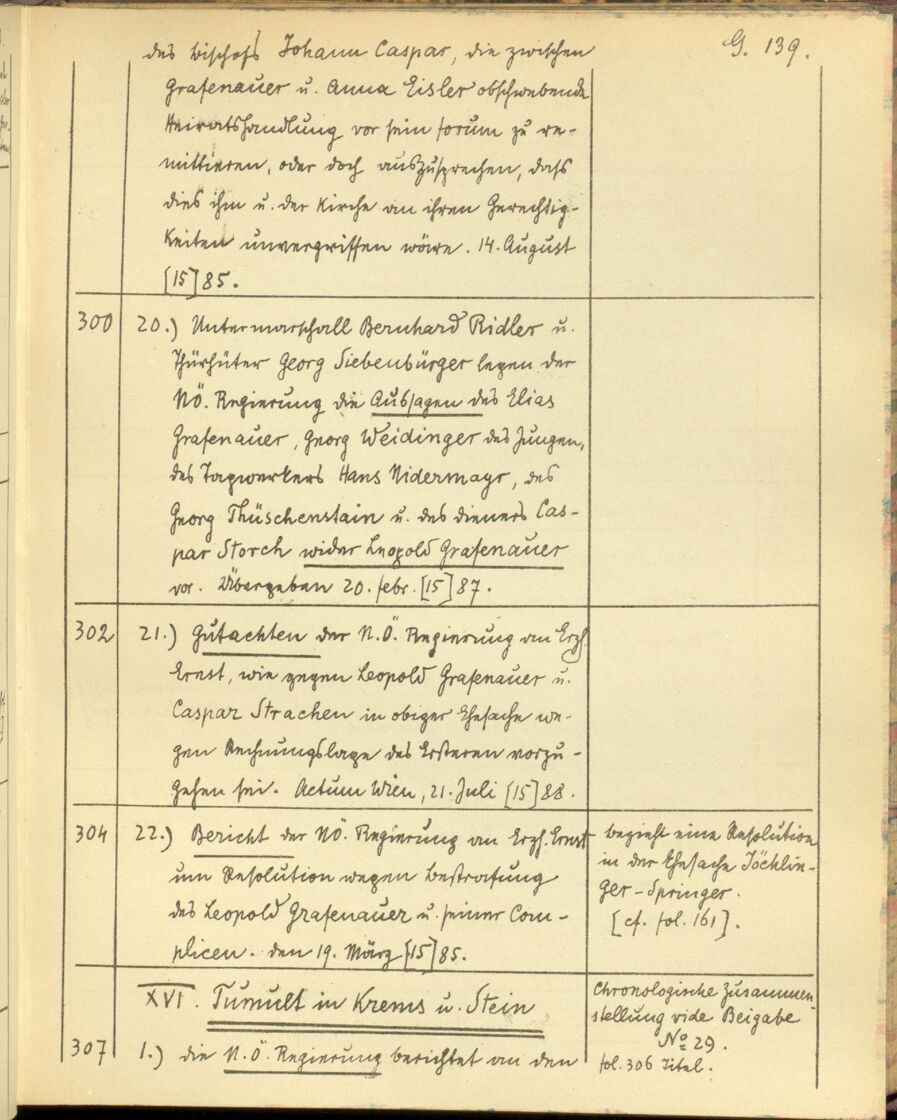 G. 139.
des Bischofs Johann Caspar, die zwischen
Grafenauer u. Anna Eisler obschwebende
Heiratshandlung vor sein forum zu re-
mittieren, oder doch auszusprechen, dass
dies ihm u. der Kirche an ihren Gerechtig-
keiten unvergriffen wäre. 14. August
[15]85.
300 20.) Untermarschall Bernhard Ridler u.
Thürhüter Georg Siebenbürger legen der
NÖ. Regierung die Aussagen des Elias
Grafenauer, Georg Weidinger des Jungen,
des Tagwerkers Hans Nidermayr, des
Georg Thüschenstain u. des dieners Cas-
par Storch wider Leopold Grafenauer
vor. Übergeben 20. febr. [15]87.
302 21.) Gutachten der N.Ö. Regierung an Erzh.
Ernst, wie gegen Leopold Grafenauer u.
Caspar Strachen in obiger Ehesache we-
gen Rechnungslage des Ersteren vorzu-
gehen sei. Actum Wien, 21. Juli [15]88.
304 22.) Bericht der NÖ. Regierung an Erzh. Ernst
um Resolution wegen Bestrafung
des Leopold Grafenauer u. seiner Com-
plicen. den 19. März [15]85.
begieht eine Resolution
in der Ehesache Jöchlin-
ger-Springer.
[cf. fol. 161].
XVI. Tumult in Krems u. Stein
Chronologische Zusammen-
stellung vide Beigabe
No 29.
fol. 306 Titel.
307 1.) die N.Ö. Regierung berichtet an den